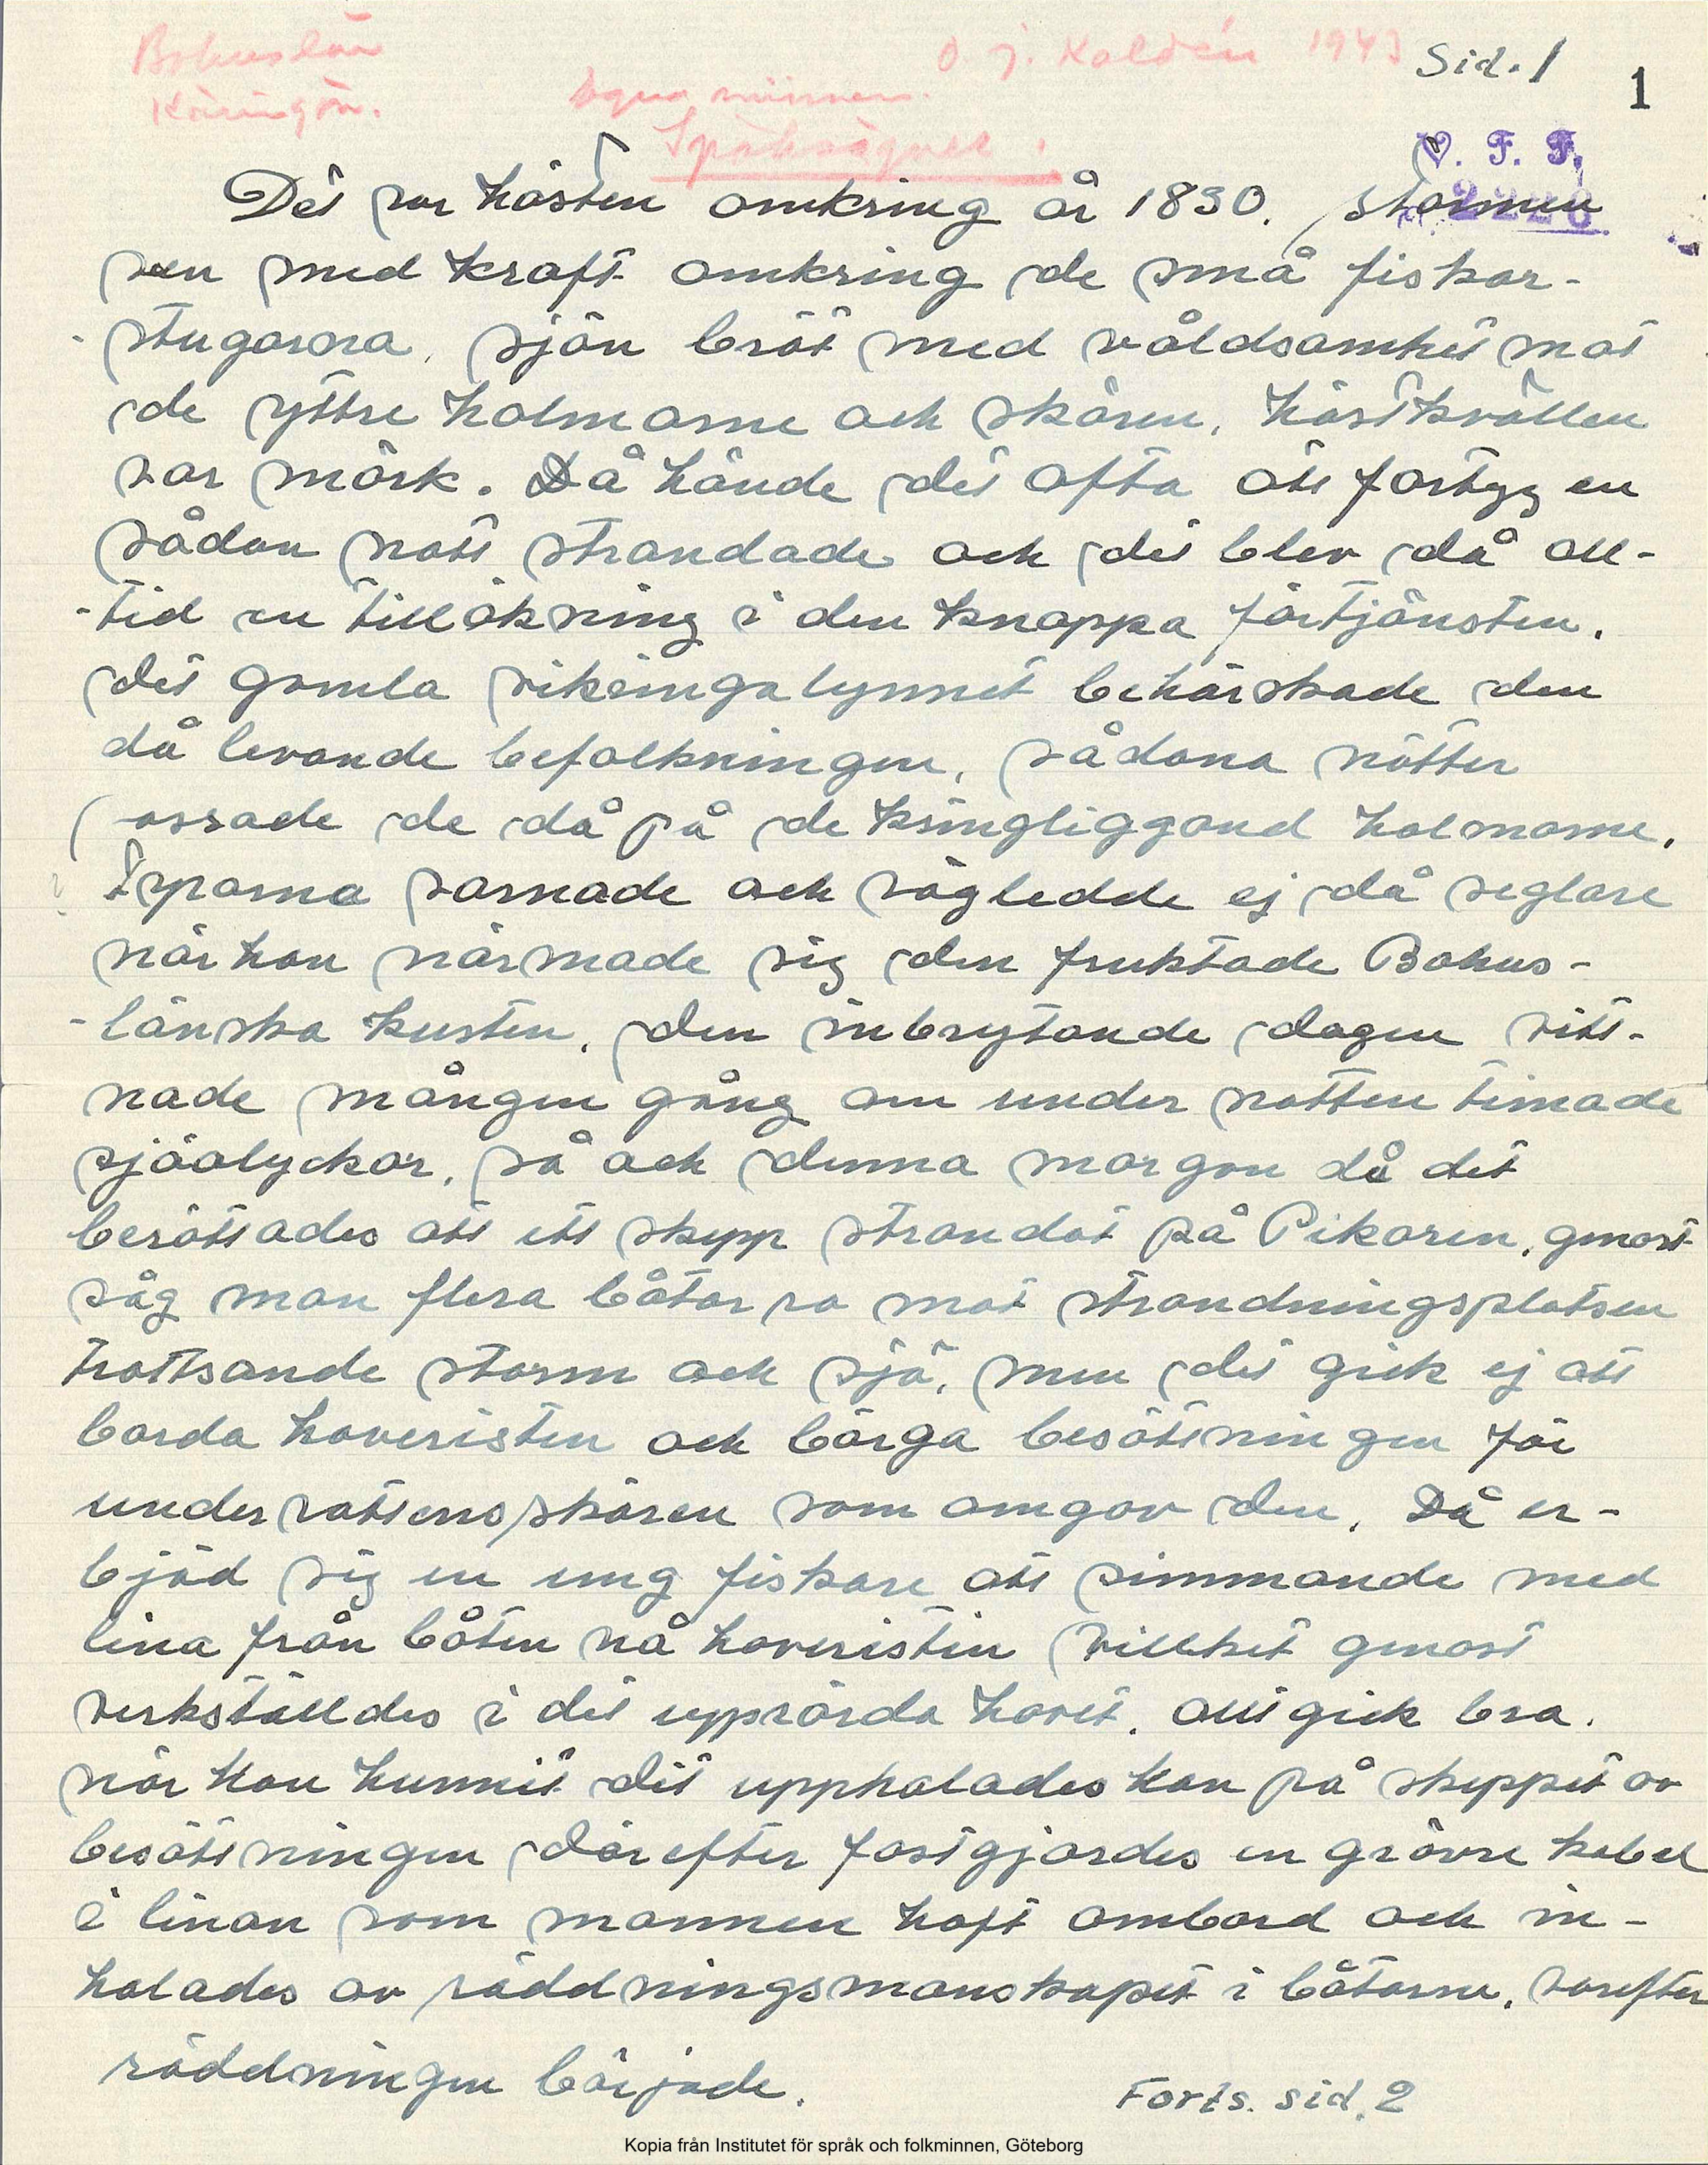 Bohuslän
Käringön.
O. J. Kaldén 1943
Sägner, minnen.
Spöksägner.
Sid. 1
1
V. F. F.
2226
Det var hösten omkring år 1830. Stormen
ven med kraft omkring de små fiskar-
-stugorna, sjön bröt med våldsamhet mot
de yttre holmarne och skären, höstkvällen
var mörk. Då hände det ofta att fartyg en
sådan natt strandade och det blev då all-
-tid en tillökning i den knappa förtjänsten.
det gamla vikingalynnet behärskade den
då levande befolkningen, sådana nätter
vasade de då på de kringliggand holmarne.
Fyrarna varnade och vägledde ej då seglare
när han närmade sig den fruktade Bohus-
-länska kusten, den inbrytande dagen vitt-
nade mången gång om under natten timade
sjöolyckor, så ock denna morgon då det
berättades att ett skepp strandat på Pikaren, genast
såg man flera båtar ro mot strandningsplatsen
trottsande storm och sjö, men det gick ej att
borda haveristen och bärga besättningen för
undervattensskären som omgav den. Då er-
bjöd sig en ung fiskare att simmande med
lina från båten nå haveristen villket genast
verkställdes i det upprörda havet, allt gick bra.
när han hunnit dit upphalades han på skeppet av
besättningen därefter fastgjordes en grövre kabel
i linan som mannen haft ombord och in-
halades av räddningsmanskapet i båtarne, varefter
räddningen började.
Forts. sid. 2
Kopia från Institutet för språk och folkminnen, Göteborg